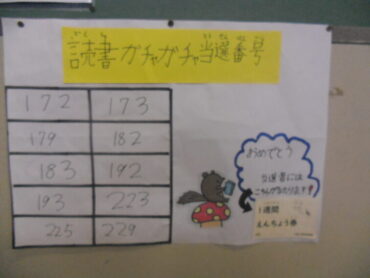 どくしょ
読書ガチャガチャ当選番号
172 173
179 182
183 192
193 223
225 229
おめでとう
当選者には
こちらが当たります!
1週間
えんちょう券